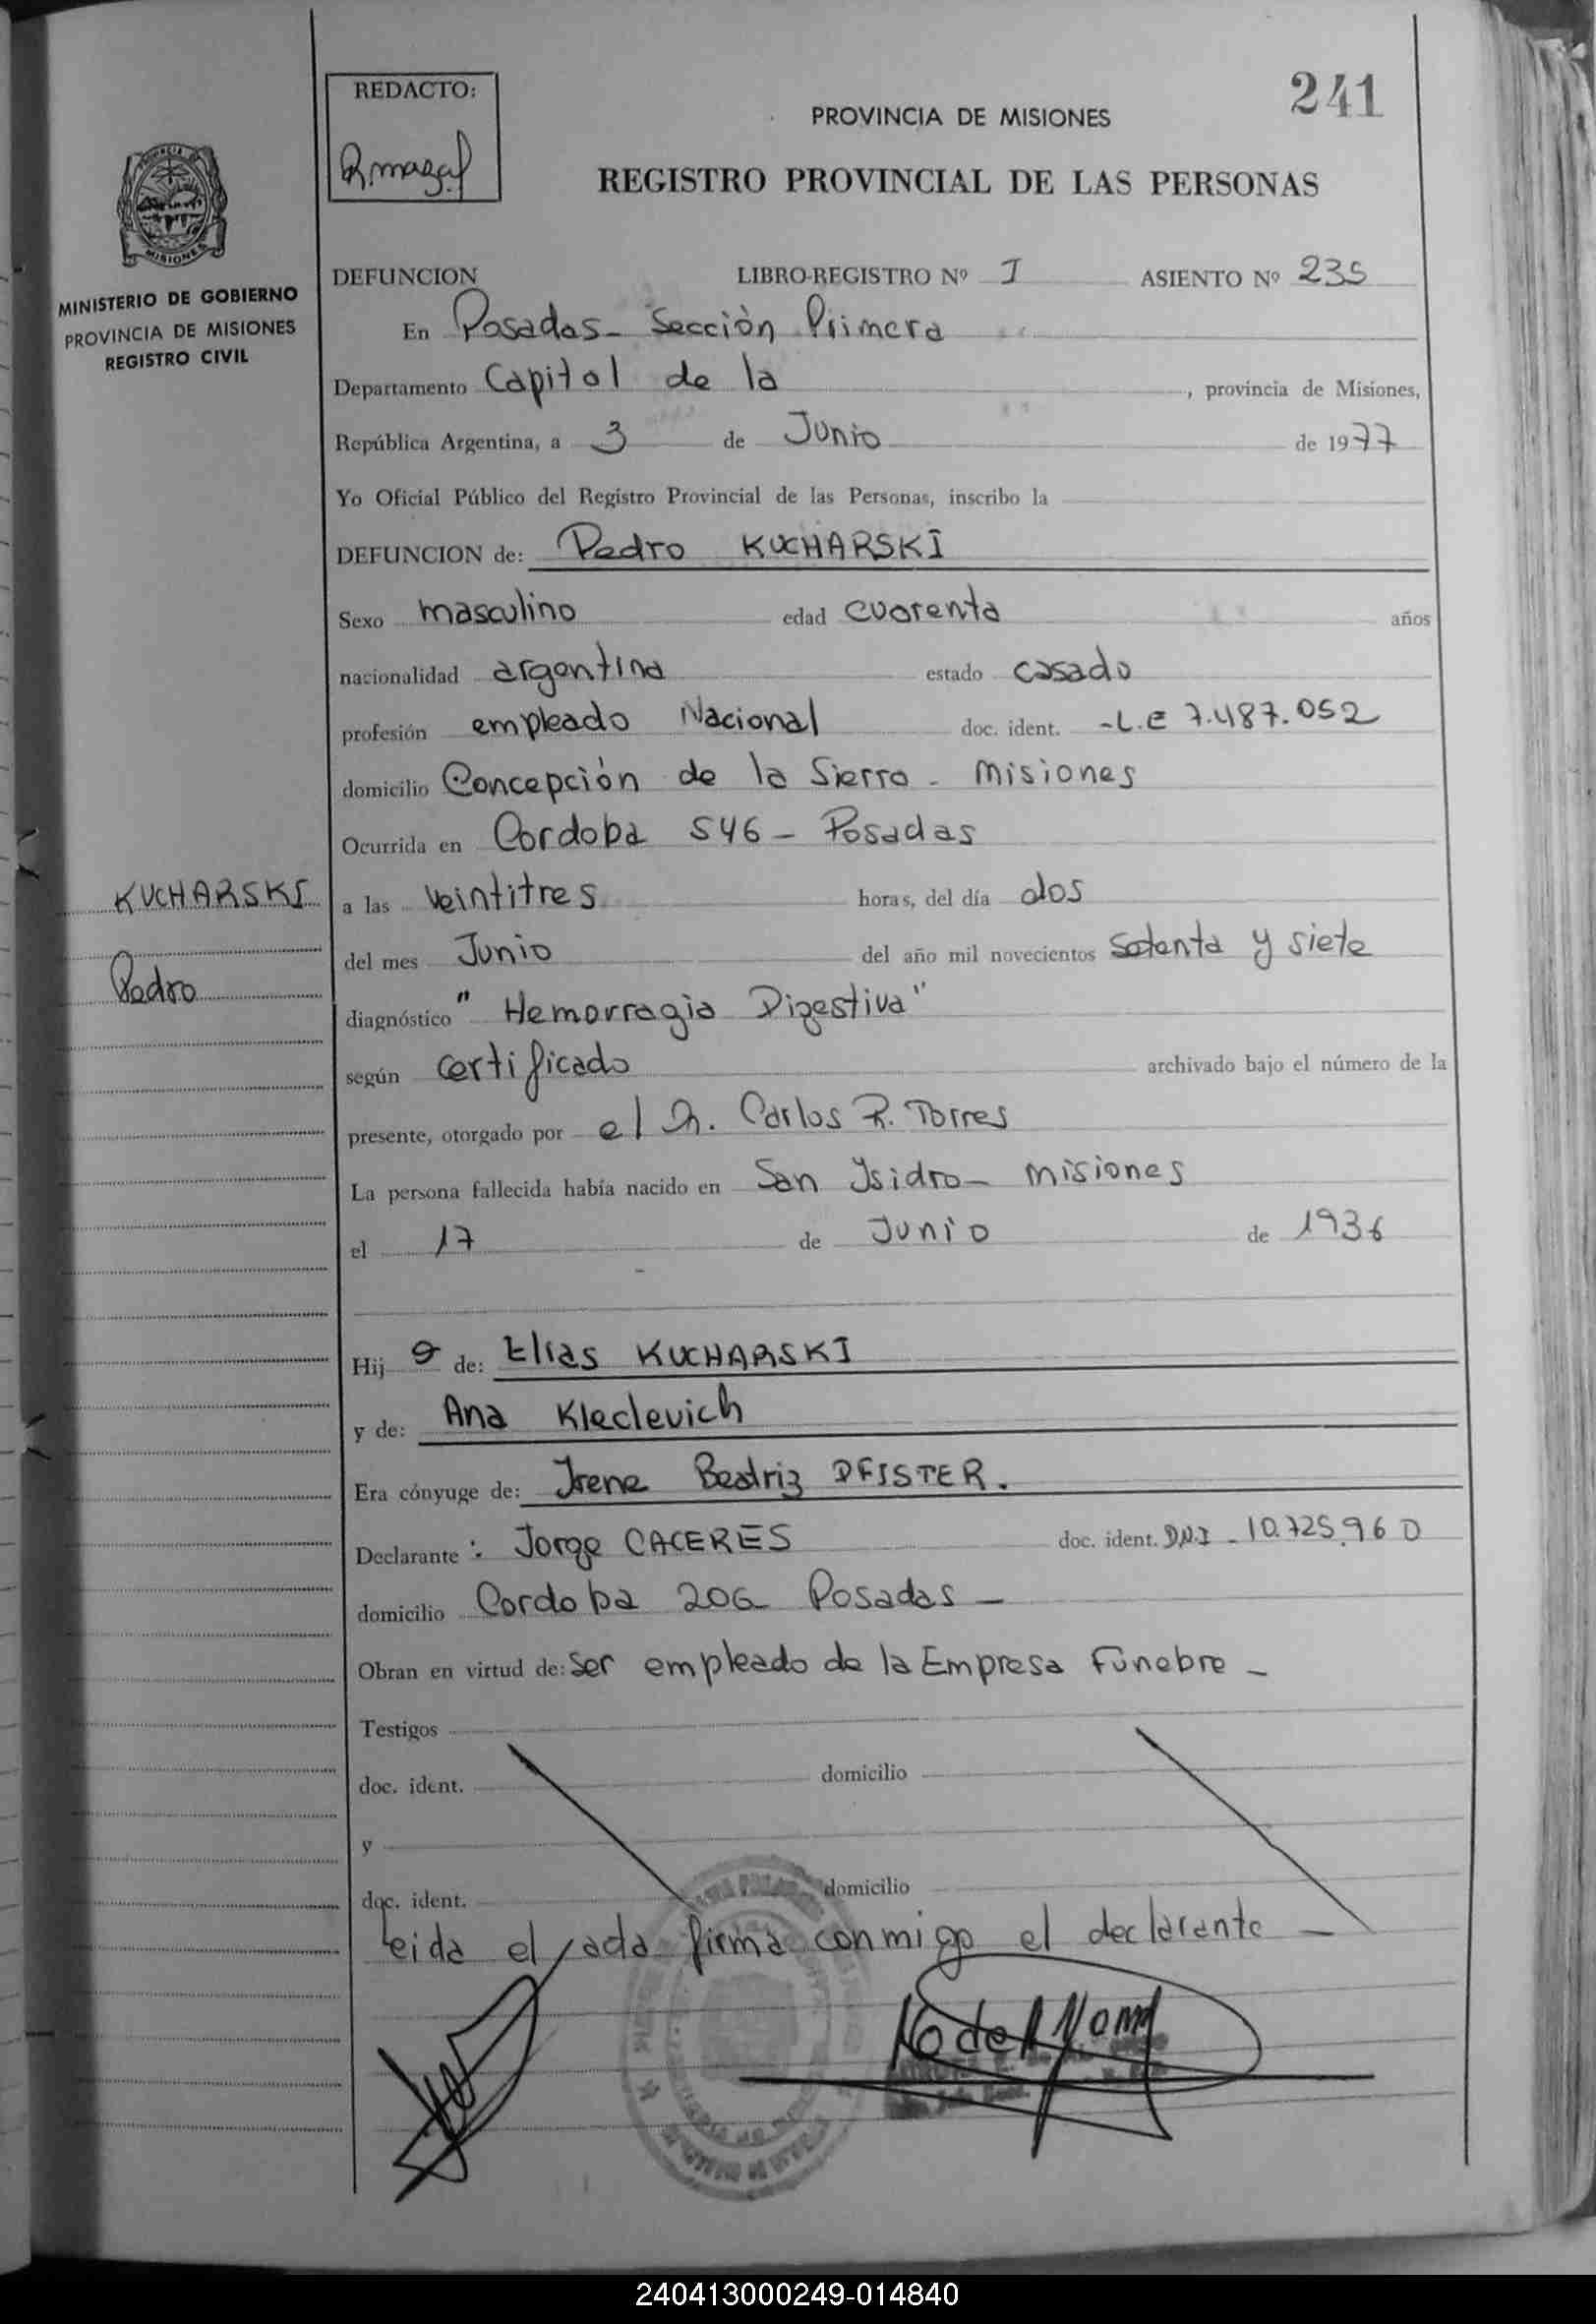 241
REDACTO:
PROVINCIA DE MISIONES
REGISTRO PROVINCIAL DE LAS PERSONAS
MISIONES
MINISTERIO DE GOBIERNO
PROVINCIA DE MISIONES
REGISTRO CIVIL
DEFUNCION LIBRO-REGISTRO Nº I ASIENTO Nº 235
En Posadas - Sección Primera
Departamento Capital de la , provincia de Misiones,
República Argentina, a 3 de Junio de 1977
Yo Oficial Público del Registro Provincial de las Personas, inscribo la
DEFUNCION de: Pedro KUCHARSKI
Sexo masculino edad cuarenta años
nacionalidad argentina estado casado
profesión empleado Nacional doc. ident. - L.E 7.487.052
domicilio Concepción de la Sierra - Misiones
Ocurrida en Cordoba 546 - Posadas
KUCHARSKI
Pedro
a las veintitres horas, del día dos
del mes Junio del año mil novecientos setenta y siete
diagnóstico "Hemorragia Digestiva"
según certificado archivado bajo el número de la
presente, otorgado por el Dr. Carlos R. Torres
La persona fallecida había nacido en San Ysidro - Misiones
el 17 de Junio de 1936
Hij o de: Elias KUCHARSKI
y de: Ana Kleclevich
Era cónyuge de: Irene Beatriz PFISTER.
Declarante : Jorge CACERES doc. ident. D.N.I - 10.725.960
domicilio Cordoba 206 Posadas -
Obran en virtud de: Ser empleado de la Empresa Fúnebre -
Testigos
doc. ident. domicilio
y
doc. ident. domicilio
Leida el acta firma conmigo el declarante -
240413000249-014840